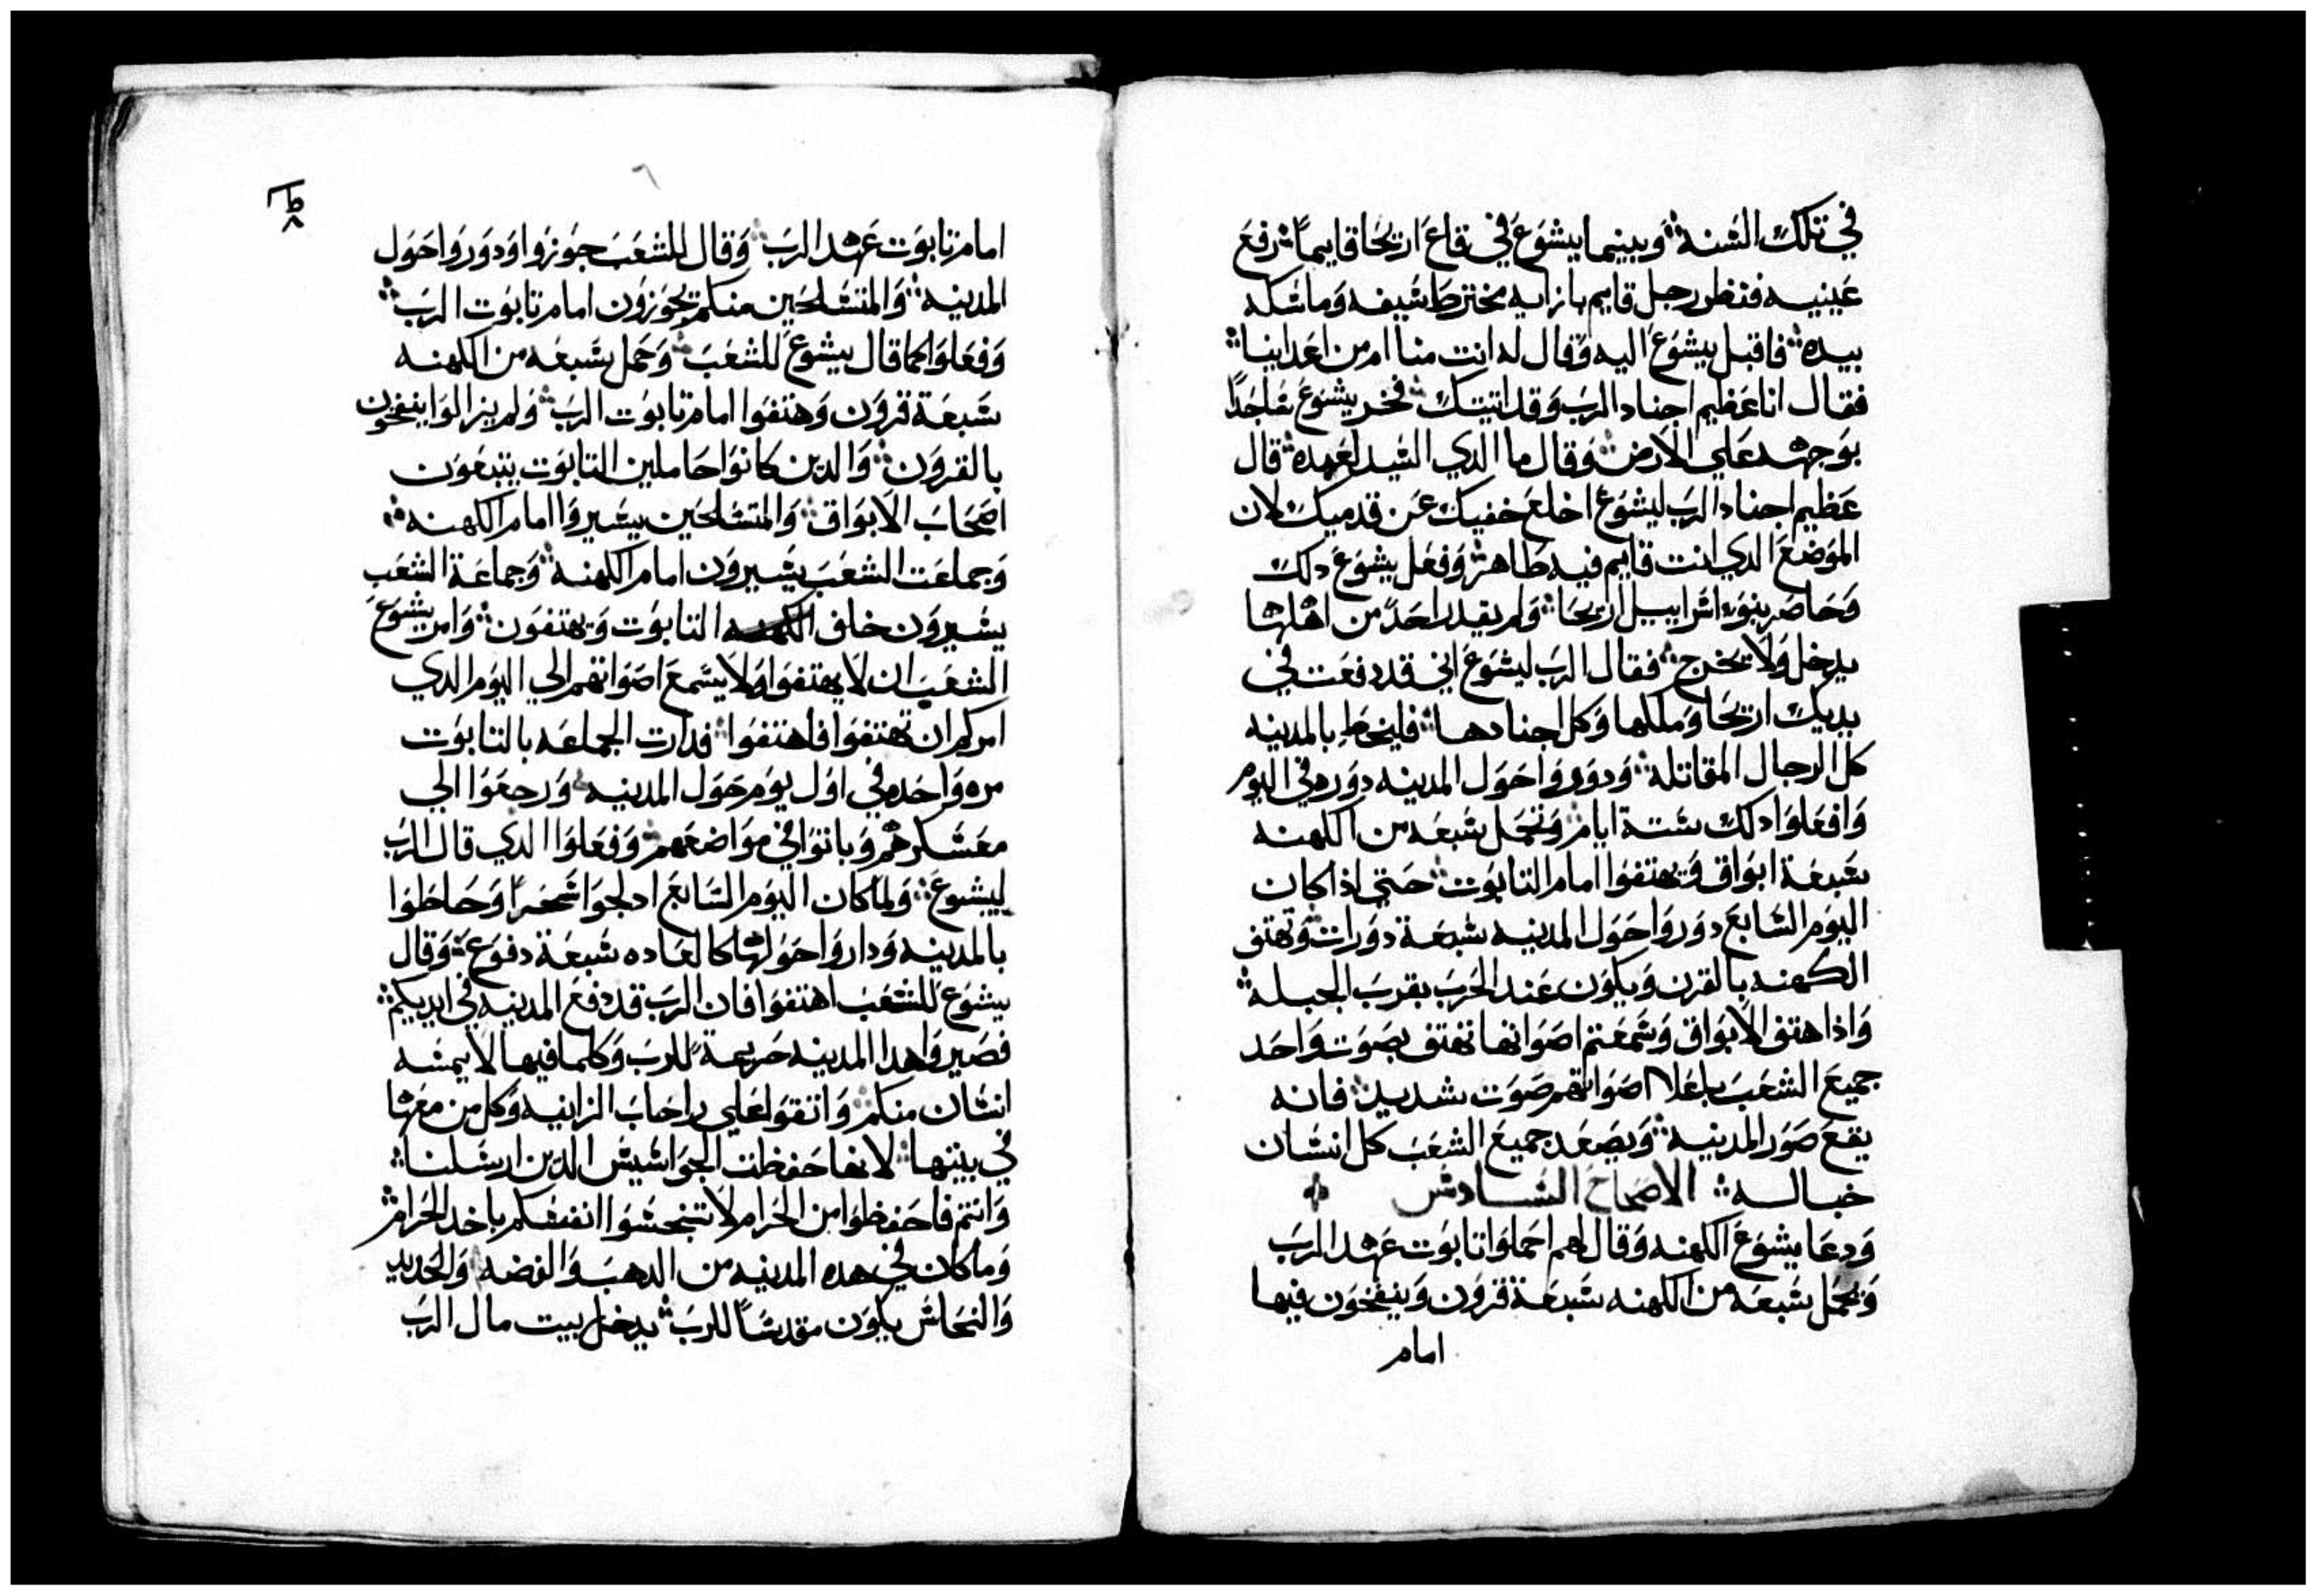 في تلك السنه وبينما يشوع في قاع اريحا قايماً رفع
عينيه فنظر رجل قايم بازايه مخترط سيفه وماسكه
بيده فاقبل يشوع اليه وقال له انت منا ام من اعداينا
فقال انا عظيم اجناد الرب وقد اتيتك فخر يشوع ساجداً
بوجهه علي الارض وقال ما الدي السيد لعبده قال
عظيم اجناد الرب ليشوع اخلع خفيك عن قدميك لان
الموضع الدي انت قايم فيه طاهر وفعل يشوع دلك
وحاصر بنو اسراييل اريحا ولم يقدر احد من اهلها
يدخل ولا يخرج فقال الرب ليشوع اني قد دفعت في
يديك اريحا وملكها وكل اجنادها فليحط بالمدينه
كل الرجال المقاتله ودوروا حول المدينه دوره في اليوم
وافعلوا دلك ستة ايام وتحمل سبعه من الكهنه
سبعة ابواق ويهتفوا امام التابوت حتي اذا كان
اليوم السابع دوروا حول المدينه سبعة دورات وتهتف
الكهنه بالقرن ويكون عند الحرب بقرب الجبله
واذا هتف الابواق وسمعتم اصواتها تهتف بصوت واحد
جميع الشعب باعلا اصواتهم صوت شديد فانه
يقع صور المدينه ويصعد جميع الشعب كل انسان
خباله الاصحاح السادس
ودعا يشوع الكهنه وقال لهم احملوا تابوت عهد الرب
وتحمل سبعه من الكهنه سبعة قرون وينفخون فيها
امام
٦
امام تابوت عهد الرب وقال للشعب جوزوا ودوروا حول
المدينه والمتسلحين منكم يجوزون امام تابوت الرب
وفعلوا كما قال يشوع للشعب وحمل سبعه من الكهنه
سبعة قرون وهتفوا امام تابوت الرب ولم يزالوا ينفخون
بالقرون والدين كانوا حاملين التابوت يتبعون
اصحاب الابواق والمتسلحين يسيروا امام الكهنه
وجماعت الشعب يسيرون امام الكهنه وجماعة الشعب
يسيرون خلف الكهنه التابوت ويهتفون وامر يشوع
الشعب ان لا يهتفوا ولا يسمع اصواتهم الي اليوم الدي
امركم ان تهتفوا فاهتفوا فدارت الجماعه بالتابوت
مره واحده في اول يوم حول المدينه ورجعوا الي
معسكرهم وباتوا في مواضعهم وفعلوا الدي قال الرب
ليشوع ولما كان اليوم السابع ادلجوا سحراً وحاطوا
بالمدينه وداروا حولها كالعاده سبعة دفوع وقال
يشوع للشعب اهتفوا فان الرب قد دفع المدينه في ايديكم
فصيروا هدا المدينه حريمة للرب وكلما فيها لا يمسه
انسان منكم واتقوا علي راحاب الزانيه وكل من معها
في بيتها لانها حفظت الجواسيس الدين ارسلنا
وانتم فاحفظوا من الحرام لا تنجسوا انفسكم باخد الحرام
وما كان في هده المدينه من الدهب والفضه والحديد
والنحاس يكون مقدساً للرب يدخل بيت مال الرب